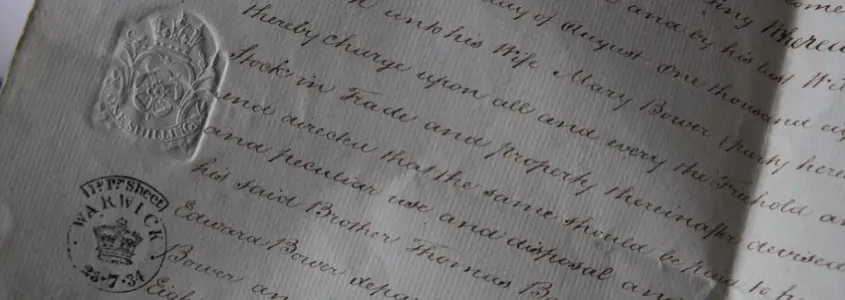 come
ding Wherea
and by his last Wil
day of August One thousand eig
unto his Wife Mary Bower (party here
thereby charge upon all and every the Freehold an
Stock in Trade and Property thereinafter devised
and directed that the same should be paid to
and peculiar use and disposal an
his said Brother Thomas Bo
Edward Bower depa
Bower an
Eigh
ONE SHILLING
1s. Pr. Sheet
WARWICK
23-7-34